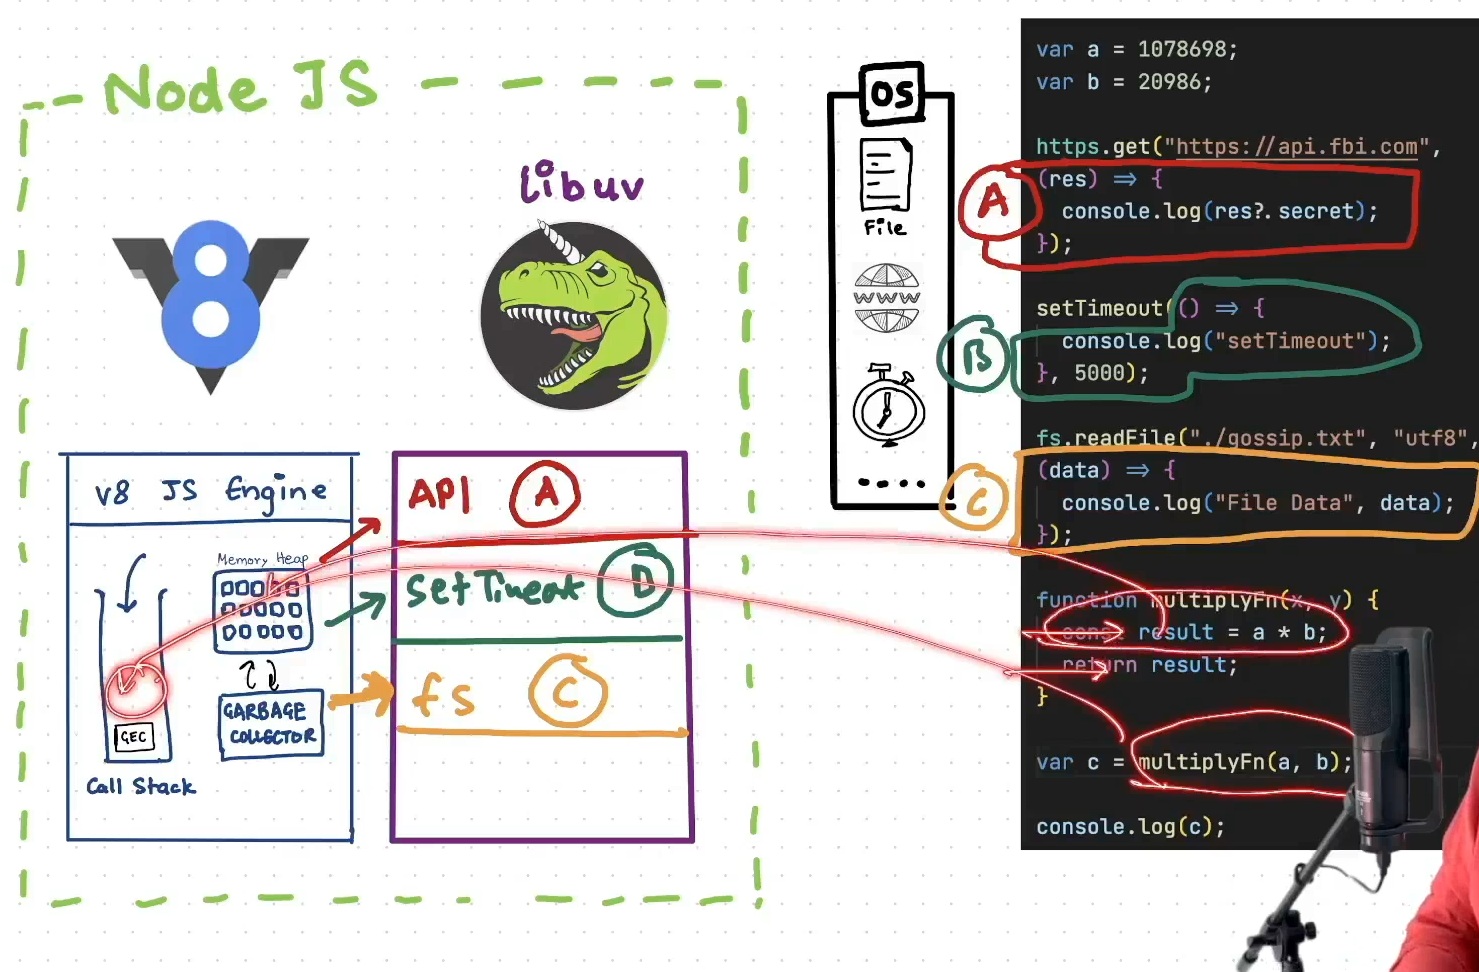 Node JS
libuv
V8
v8 JS Engine
Memory Heap
GEC
Call Stack
GARBAGE
COLLECTOR
API A
setTimeout B
fs C
OS
File
WWW
A
B
C
var a = 1078698;
var b = 20986;
https.get("https://api.fbi.com",
(res) => {
console.log(res?.secret);
});
setTimeout(() => {
console.log("setTimeout");
}, 5000);
fs.readFile("./gossip.txt", "utf8",
(data) => {
console.log("File Data", data);
});
function multiplyFn(x, y) {
const result = a * b;
return result;
}
var c = multiplyFn(a, b);
console.log(c);